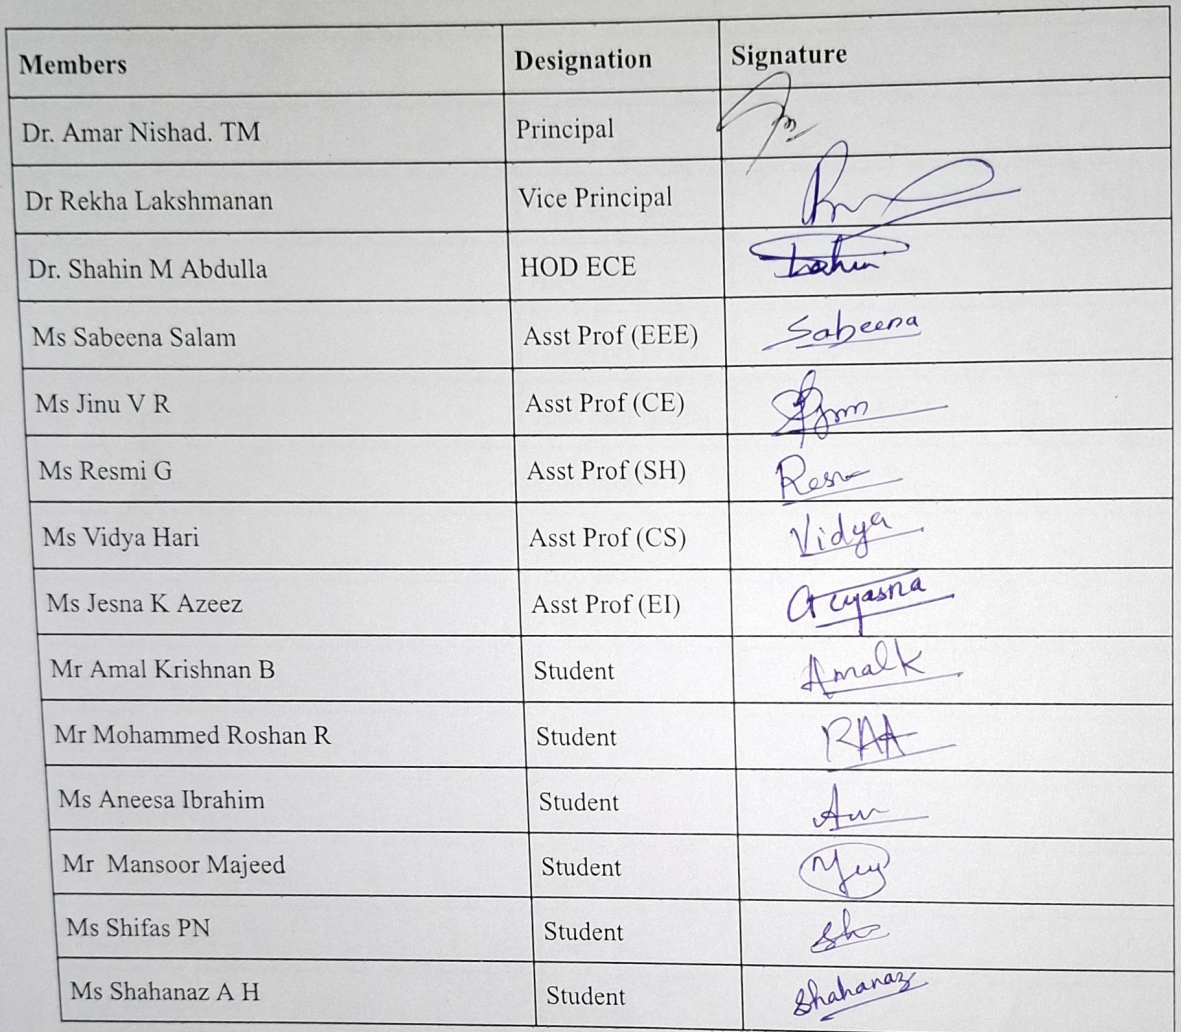 Members Designation Signature
Dr. Amar Nishad. TM Principal
Dr Rekha Lakshmanan Vice Principal
Dr. Shahin M Abdulla HOD ECE
Ms Sabeena Salam Asst Prof (EEE) Sabeena
Ms Jinu V R Asst Prof (CE)
Ms Resmi G Asst Prof (SH)
Ms Vidya Hari Asst Prof (CS) Vidya
Ms Jesna K Azeez Asst Prof (EI)
Mr Amal Krishnan B Student AmalK
Mr Mohammed Roshan R Student
Ms Aneesa Ibrahim Student
Mr Mansoor Majeed Student
Ms Shifas PN Student
Ms Shahanaz A H Student Shahanaz